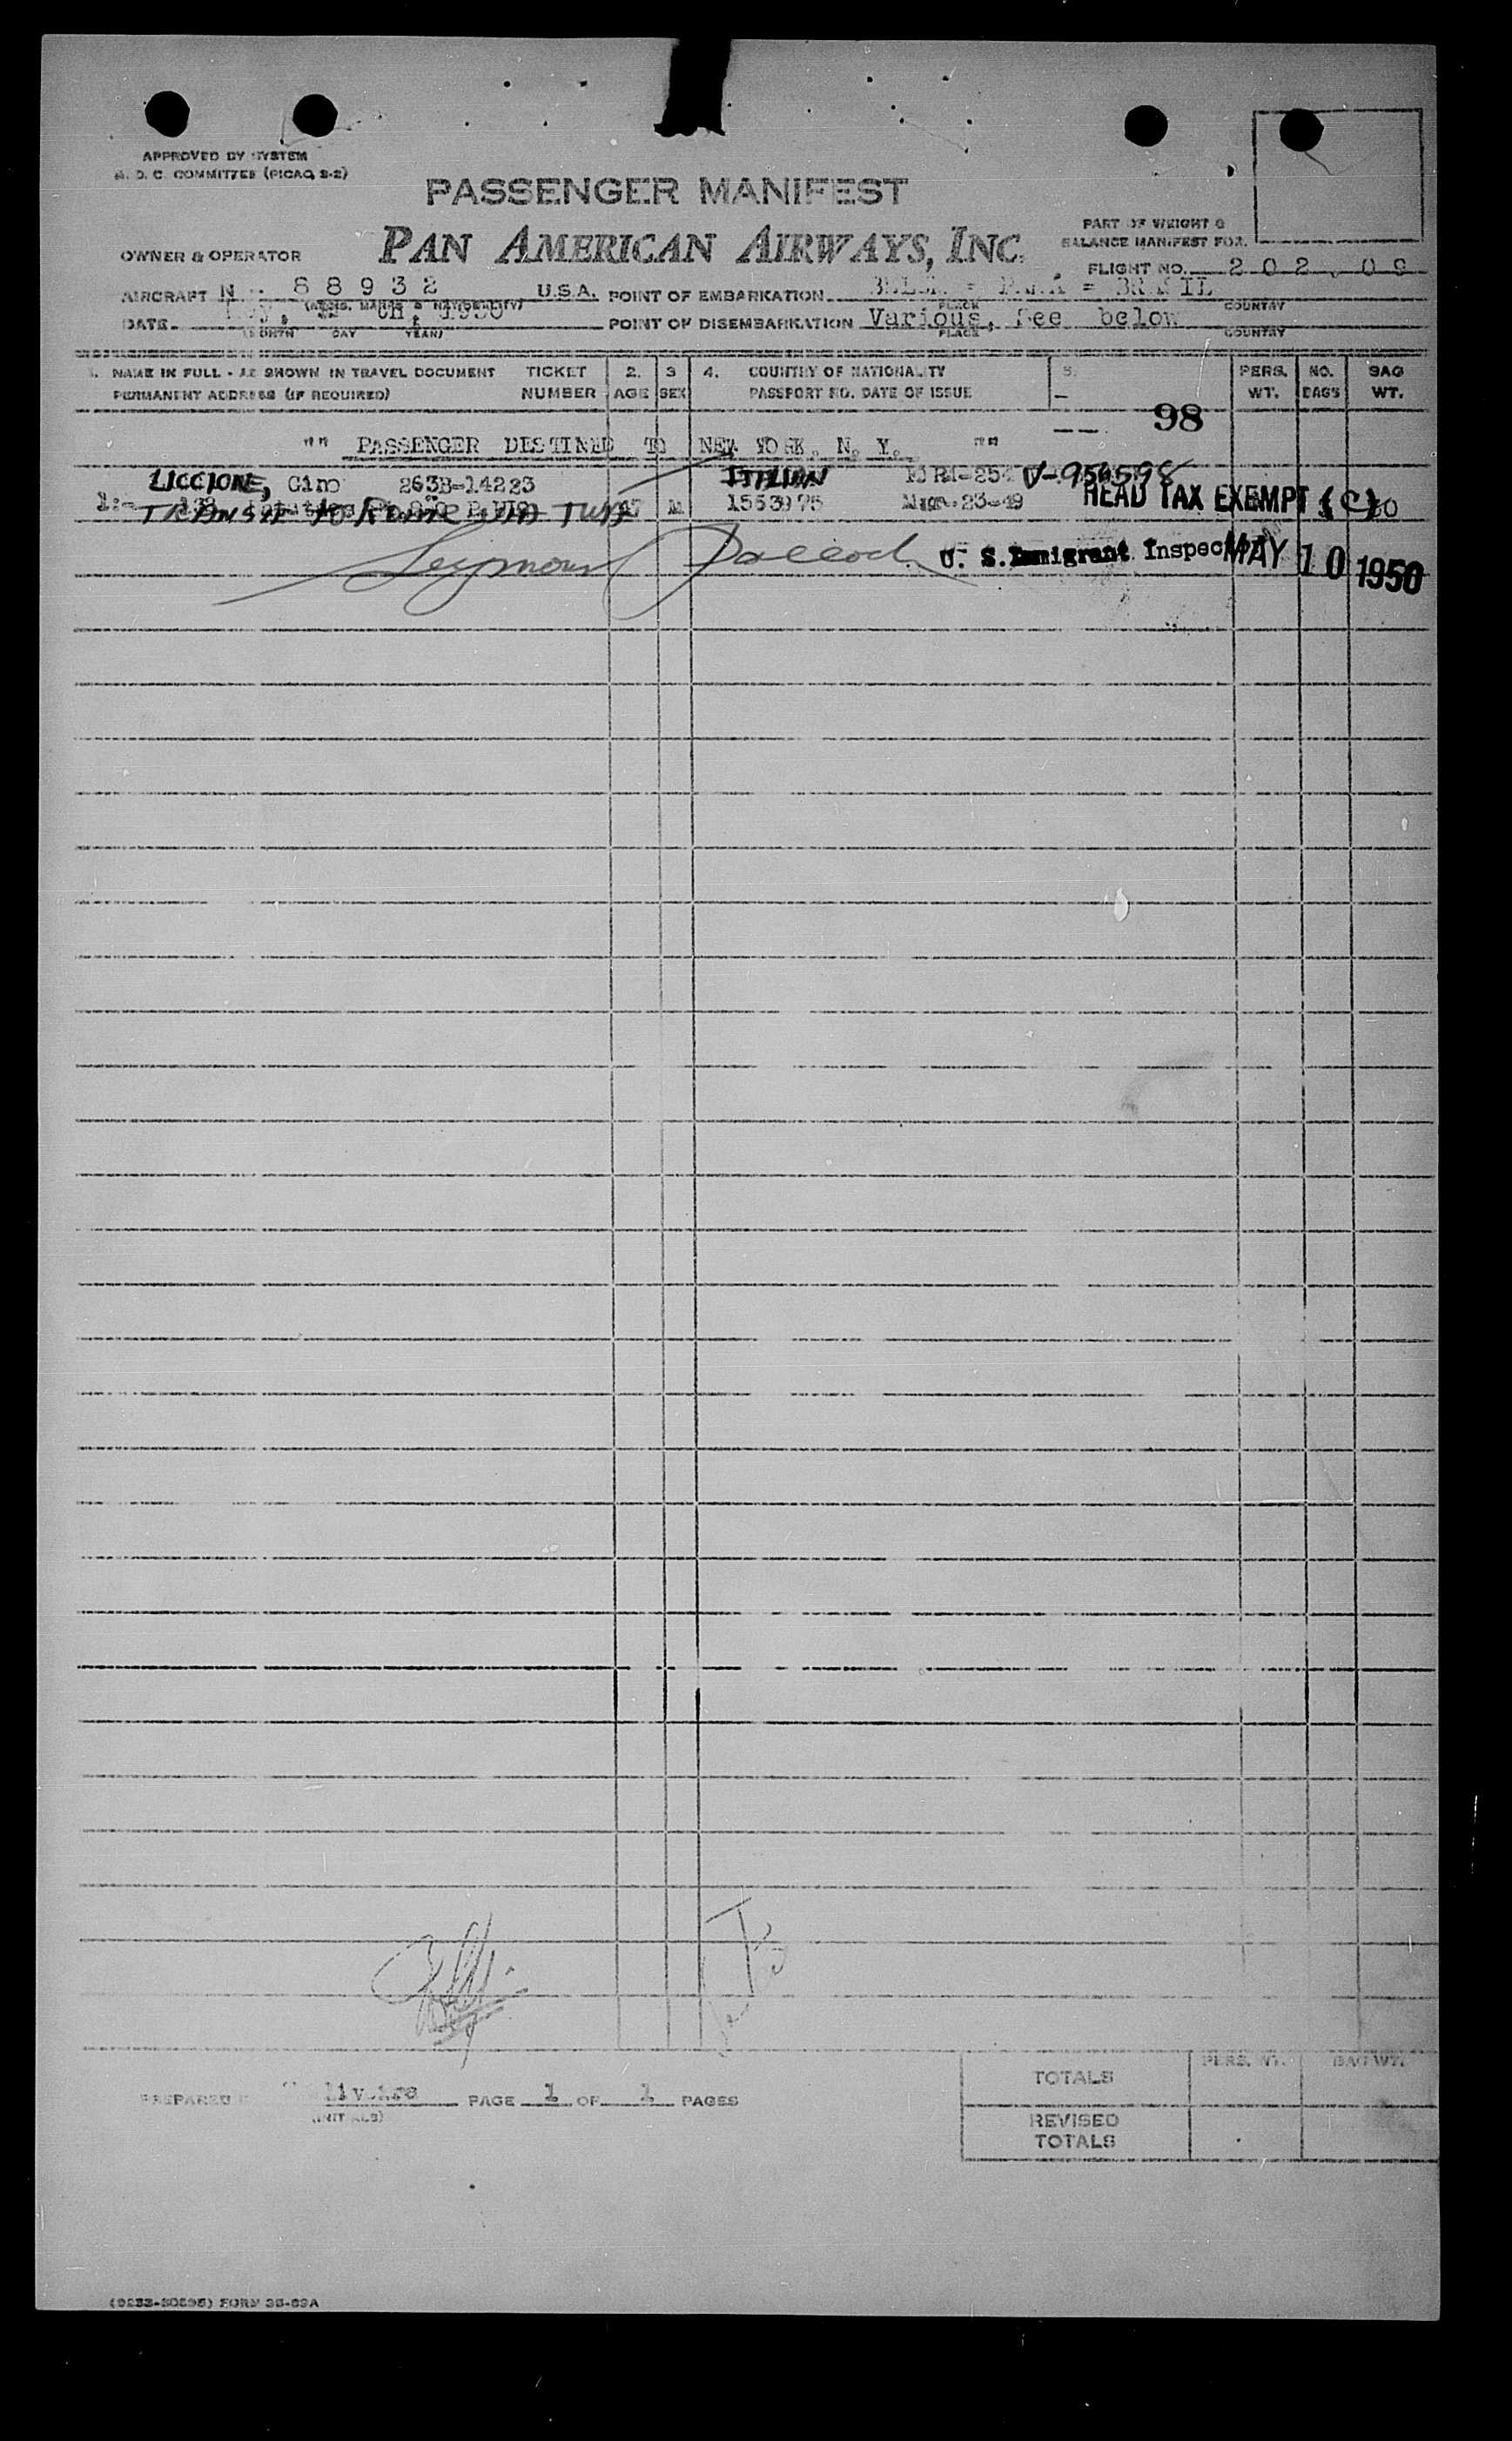 APPROVED BY SYSTEM
A. O. C. COMMITTEE (PICAO, S-2)
PASSENGER MANIFEST
PAN AMERICAN AIRWAYS, INC.
PART OF WEIGHT &
BALANCE MANIFEST FOR.
OWNER & OPERATOR
FLIGHT NO. 202.09
AIRCRAFT N - 88932 U.S.A. POINT OF EMBARKATION BRASIL
PLACE COUNTRY
DATE 1950 POINT OF DISEMBARKATION Various, See below
(MONTH DAY YEAR) PLACE COUNTRY
1. NAME IN FULL - AS SHOWN IN TRAVEL DOCUMENT TICKET 2. 3 4. COUNTRY OF NATIONALITY 5. PERS. NO. BAG
PERMANENT ADDRESS (IF REQUIRED) NUMBER AGE SEX PASSPORT NO. DATE OF ISSUE WT. BAGS WT.
98
"" PASSENGER DESTINED TO NEW YORK, N. Y. ""
LICCIONE, Gino 263B-14223 ITALIAN V-950598
1:- M 1553975 23-49 HEAD TAX EXEMPT (C)
TRANSIT TO ROME VIA TWA
Seymour U. S. Immigrant Inspector MAY 10 1950
TOTALS PERS. WT. BAG WT.
PREPARED PAGE 1 OF 1 PAGES
(INITIALS)
REVISED
TOTALS
FORM 36-69A